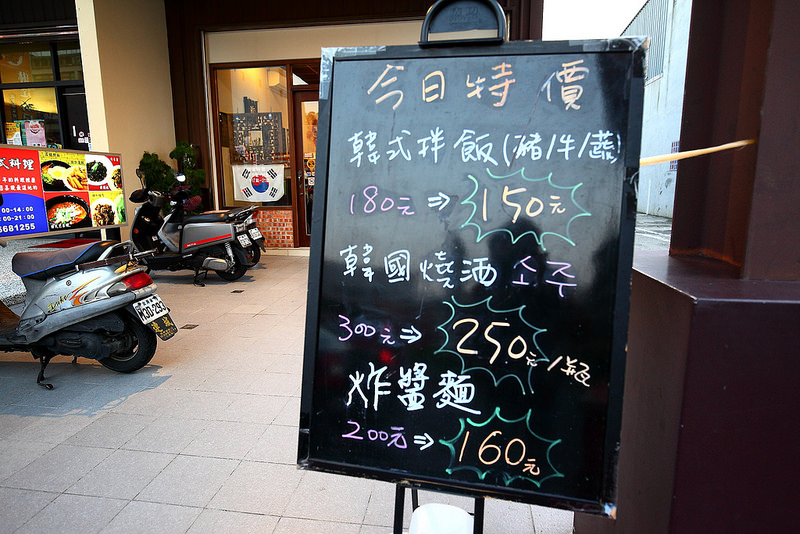 今日特價
韓式拌飯(豬/牛/蔬)
180元 ⇒ 150元
韓國燒酒 소주
300元 ⇒ 250元/瓶
炸醬麵
200元 ⇒ 160元
式料理
00-14:00
00-21:00
5681255